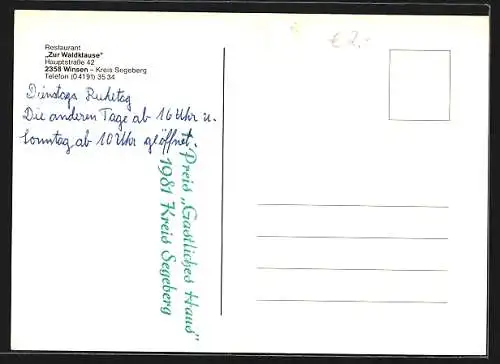 Restaurant
„Zur Waldklause"
Hauptstraße 42
2358 Winsen – Kreis Segeberg
Telefon (04191) 3534
Dienstags Ruhetag
Die anderen Tage ab 16 Uhr u.
Sonntag ab 10 Uhr geöffnet.
Preis „Gastliches Haus"
1981 Kreis Segeberg
€ 2.-